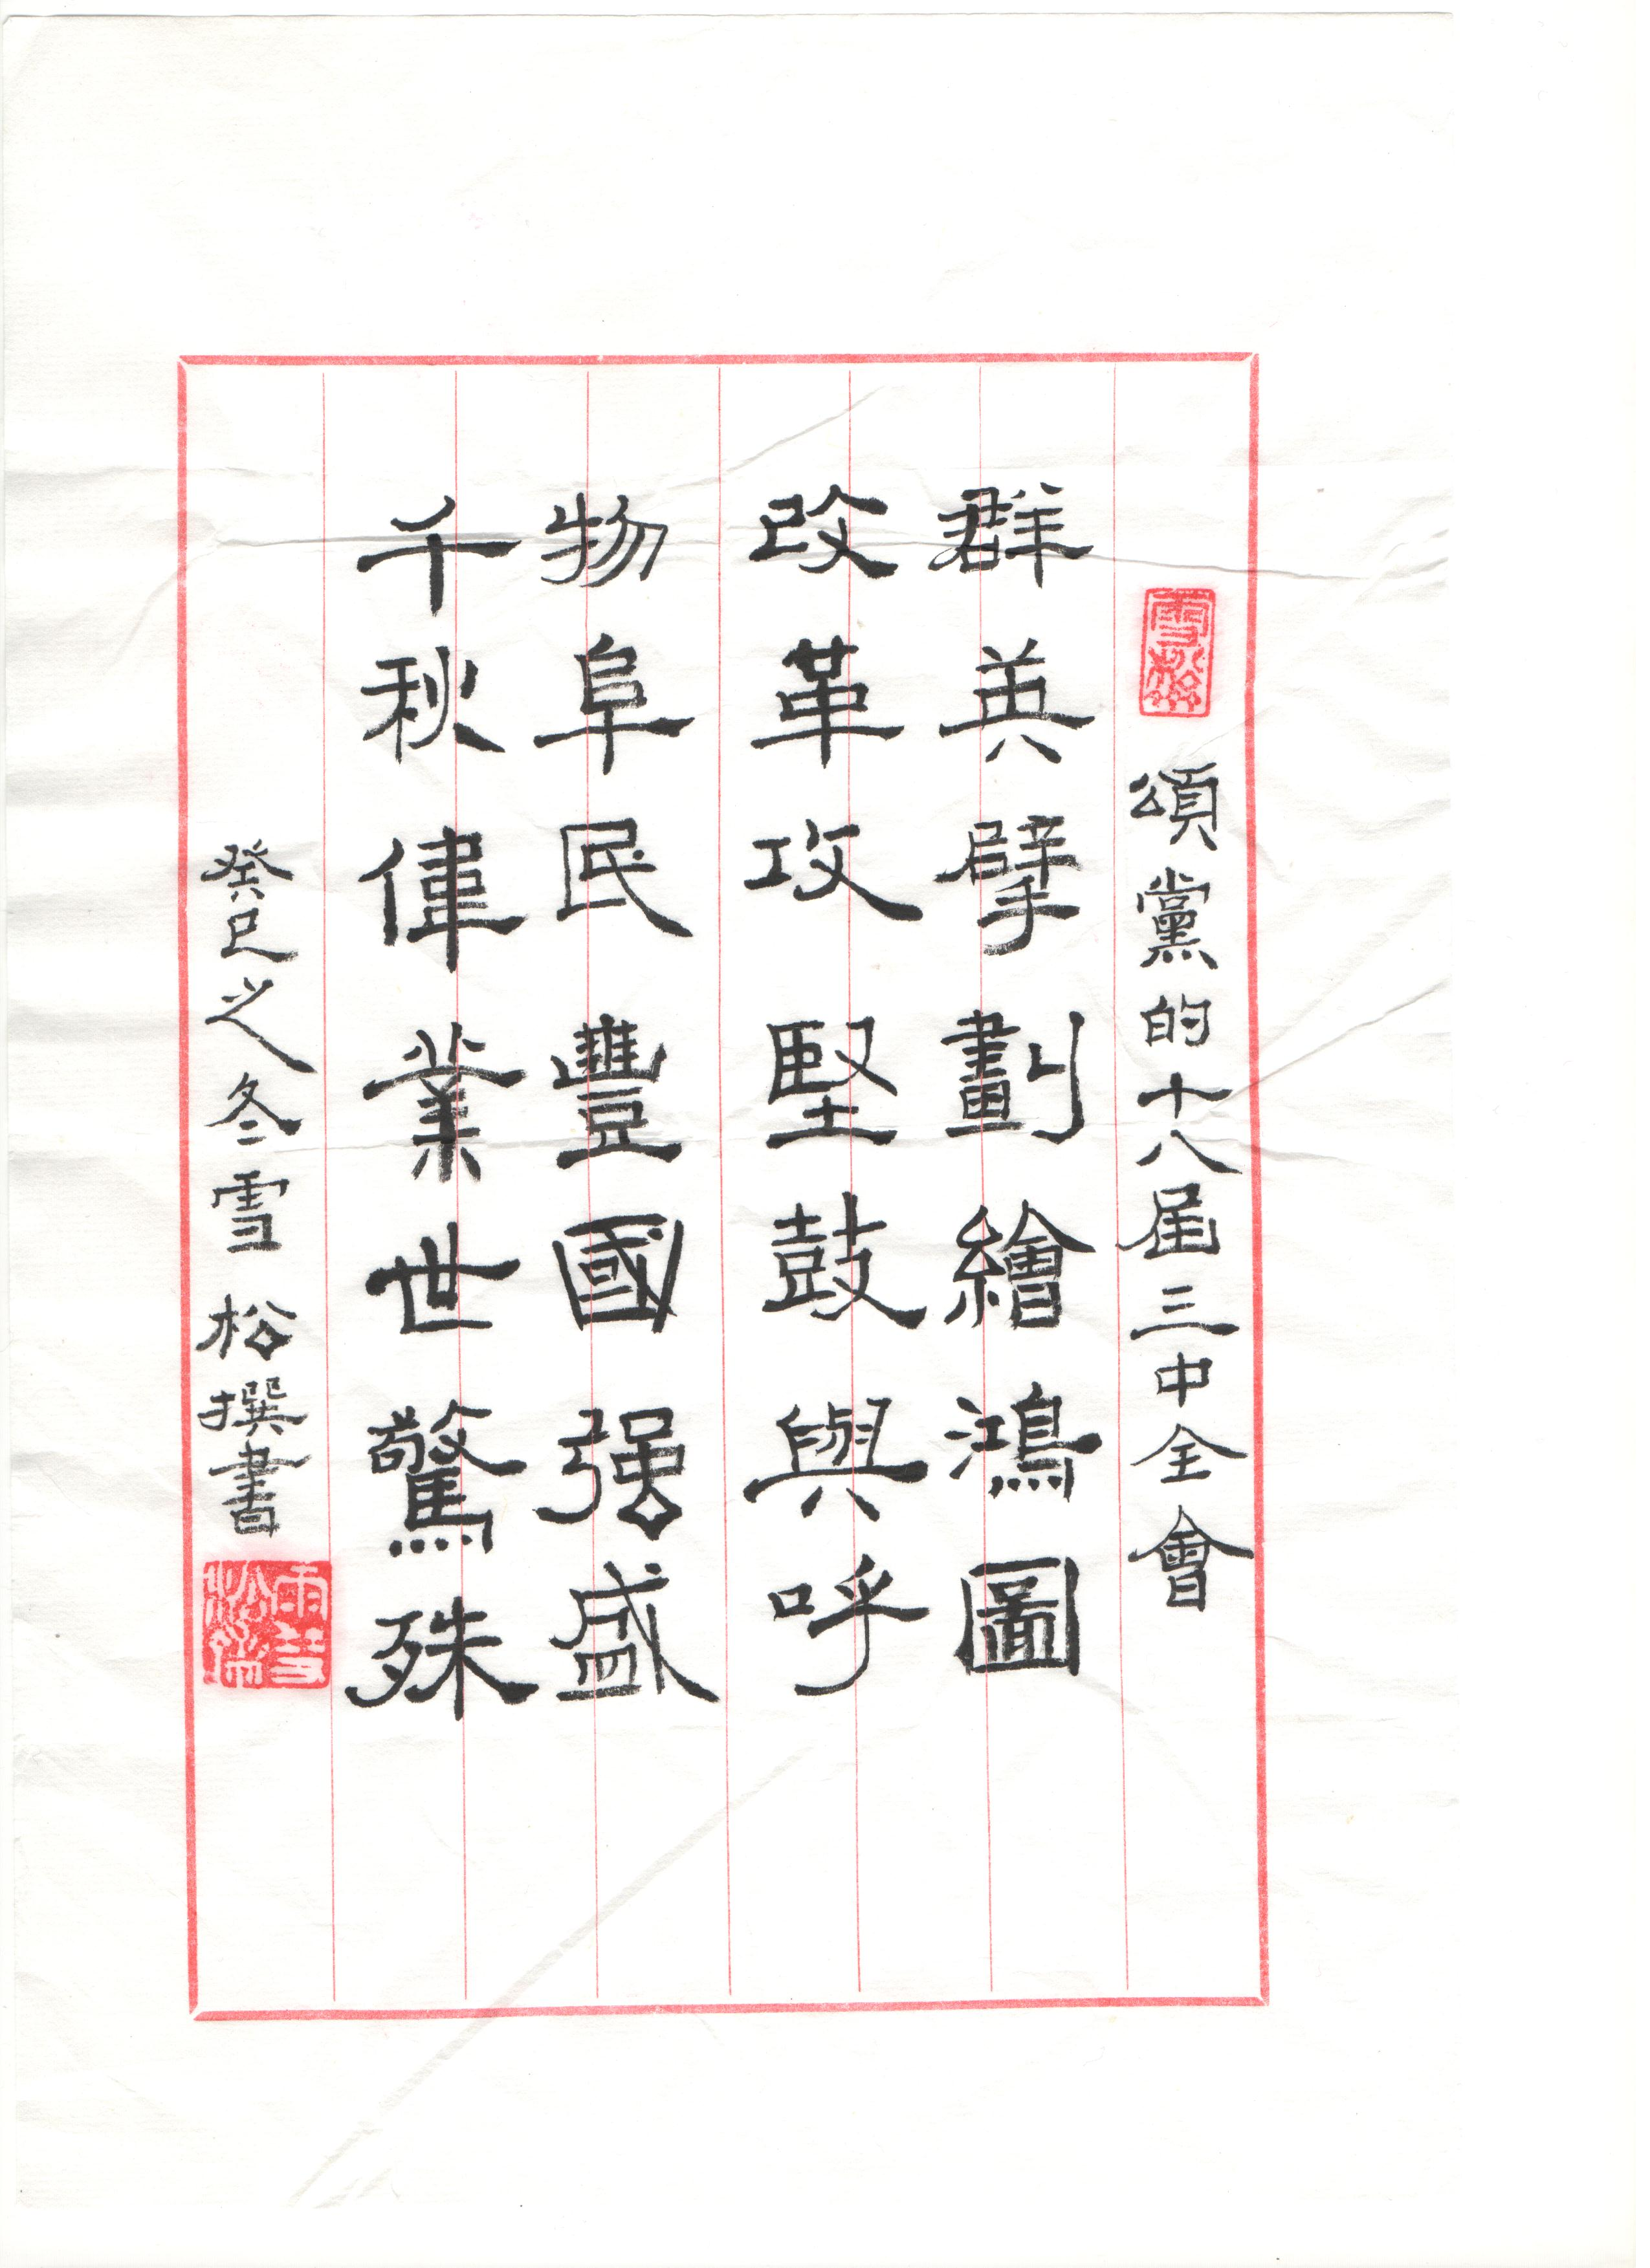 雪松
頌黨的十八届三中全會
群英擘劃繪鴻圖
改革攻堅鼓與呼
物阜民豐國强盛
千秋偉業世驚殊
癸巳之冬雪松撰書